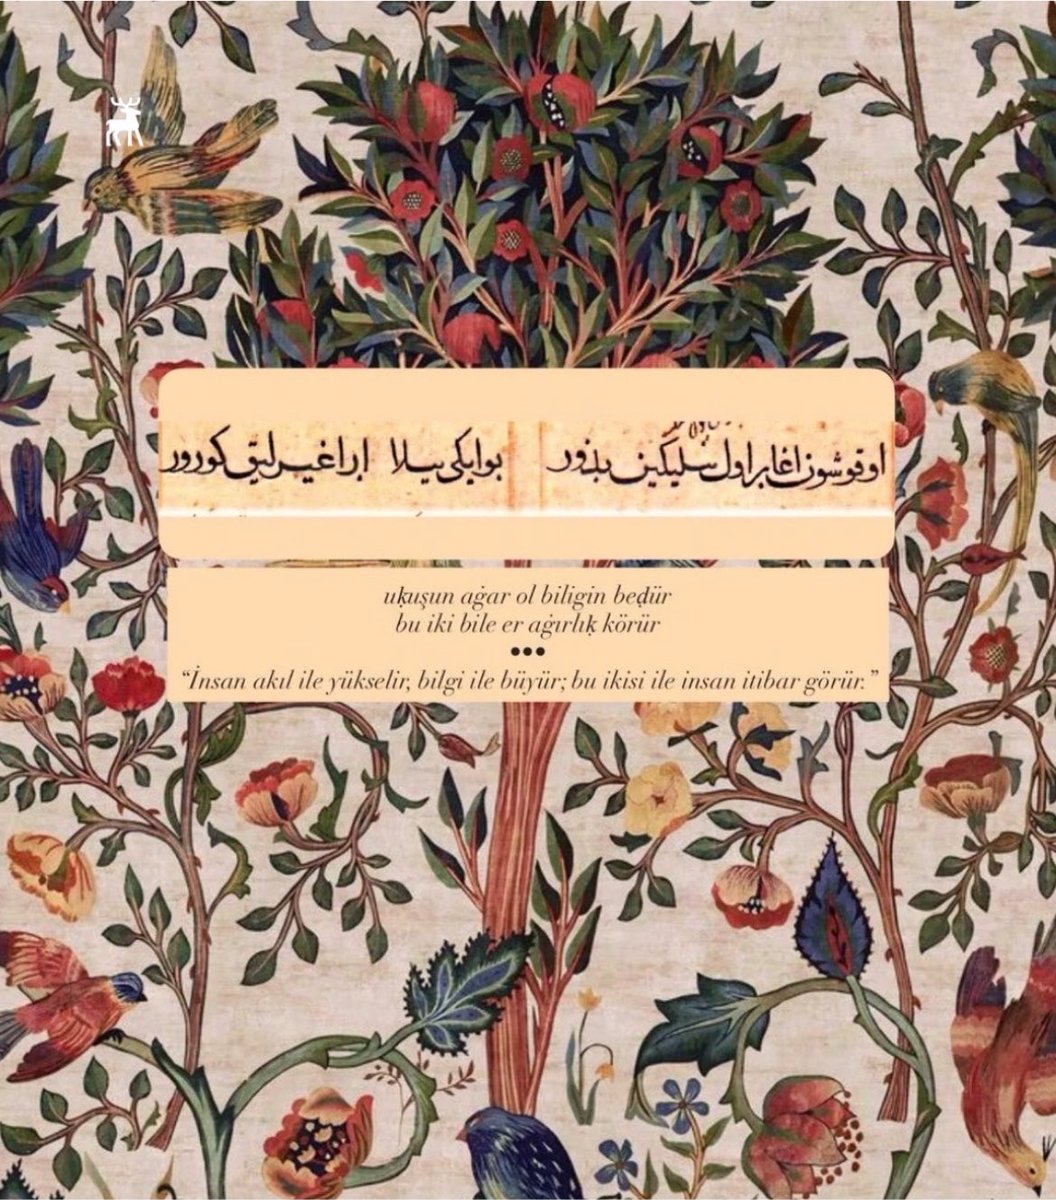 اوقوشون اغار اول بیلیکین بذور بو ایکی بیلا ار اغیرلیق کورور
uḳuşun aġar ol biligin beḍür
bu iki bile er aġırlıḳ körür
•••
“İnsan akıl ile yükselir, bilgi ile büyür; bu ikisi ile insan itibar görür.”